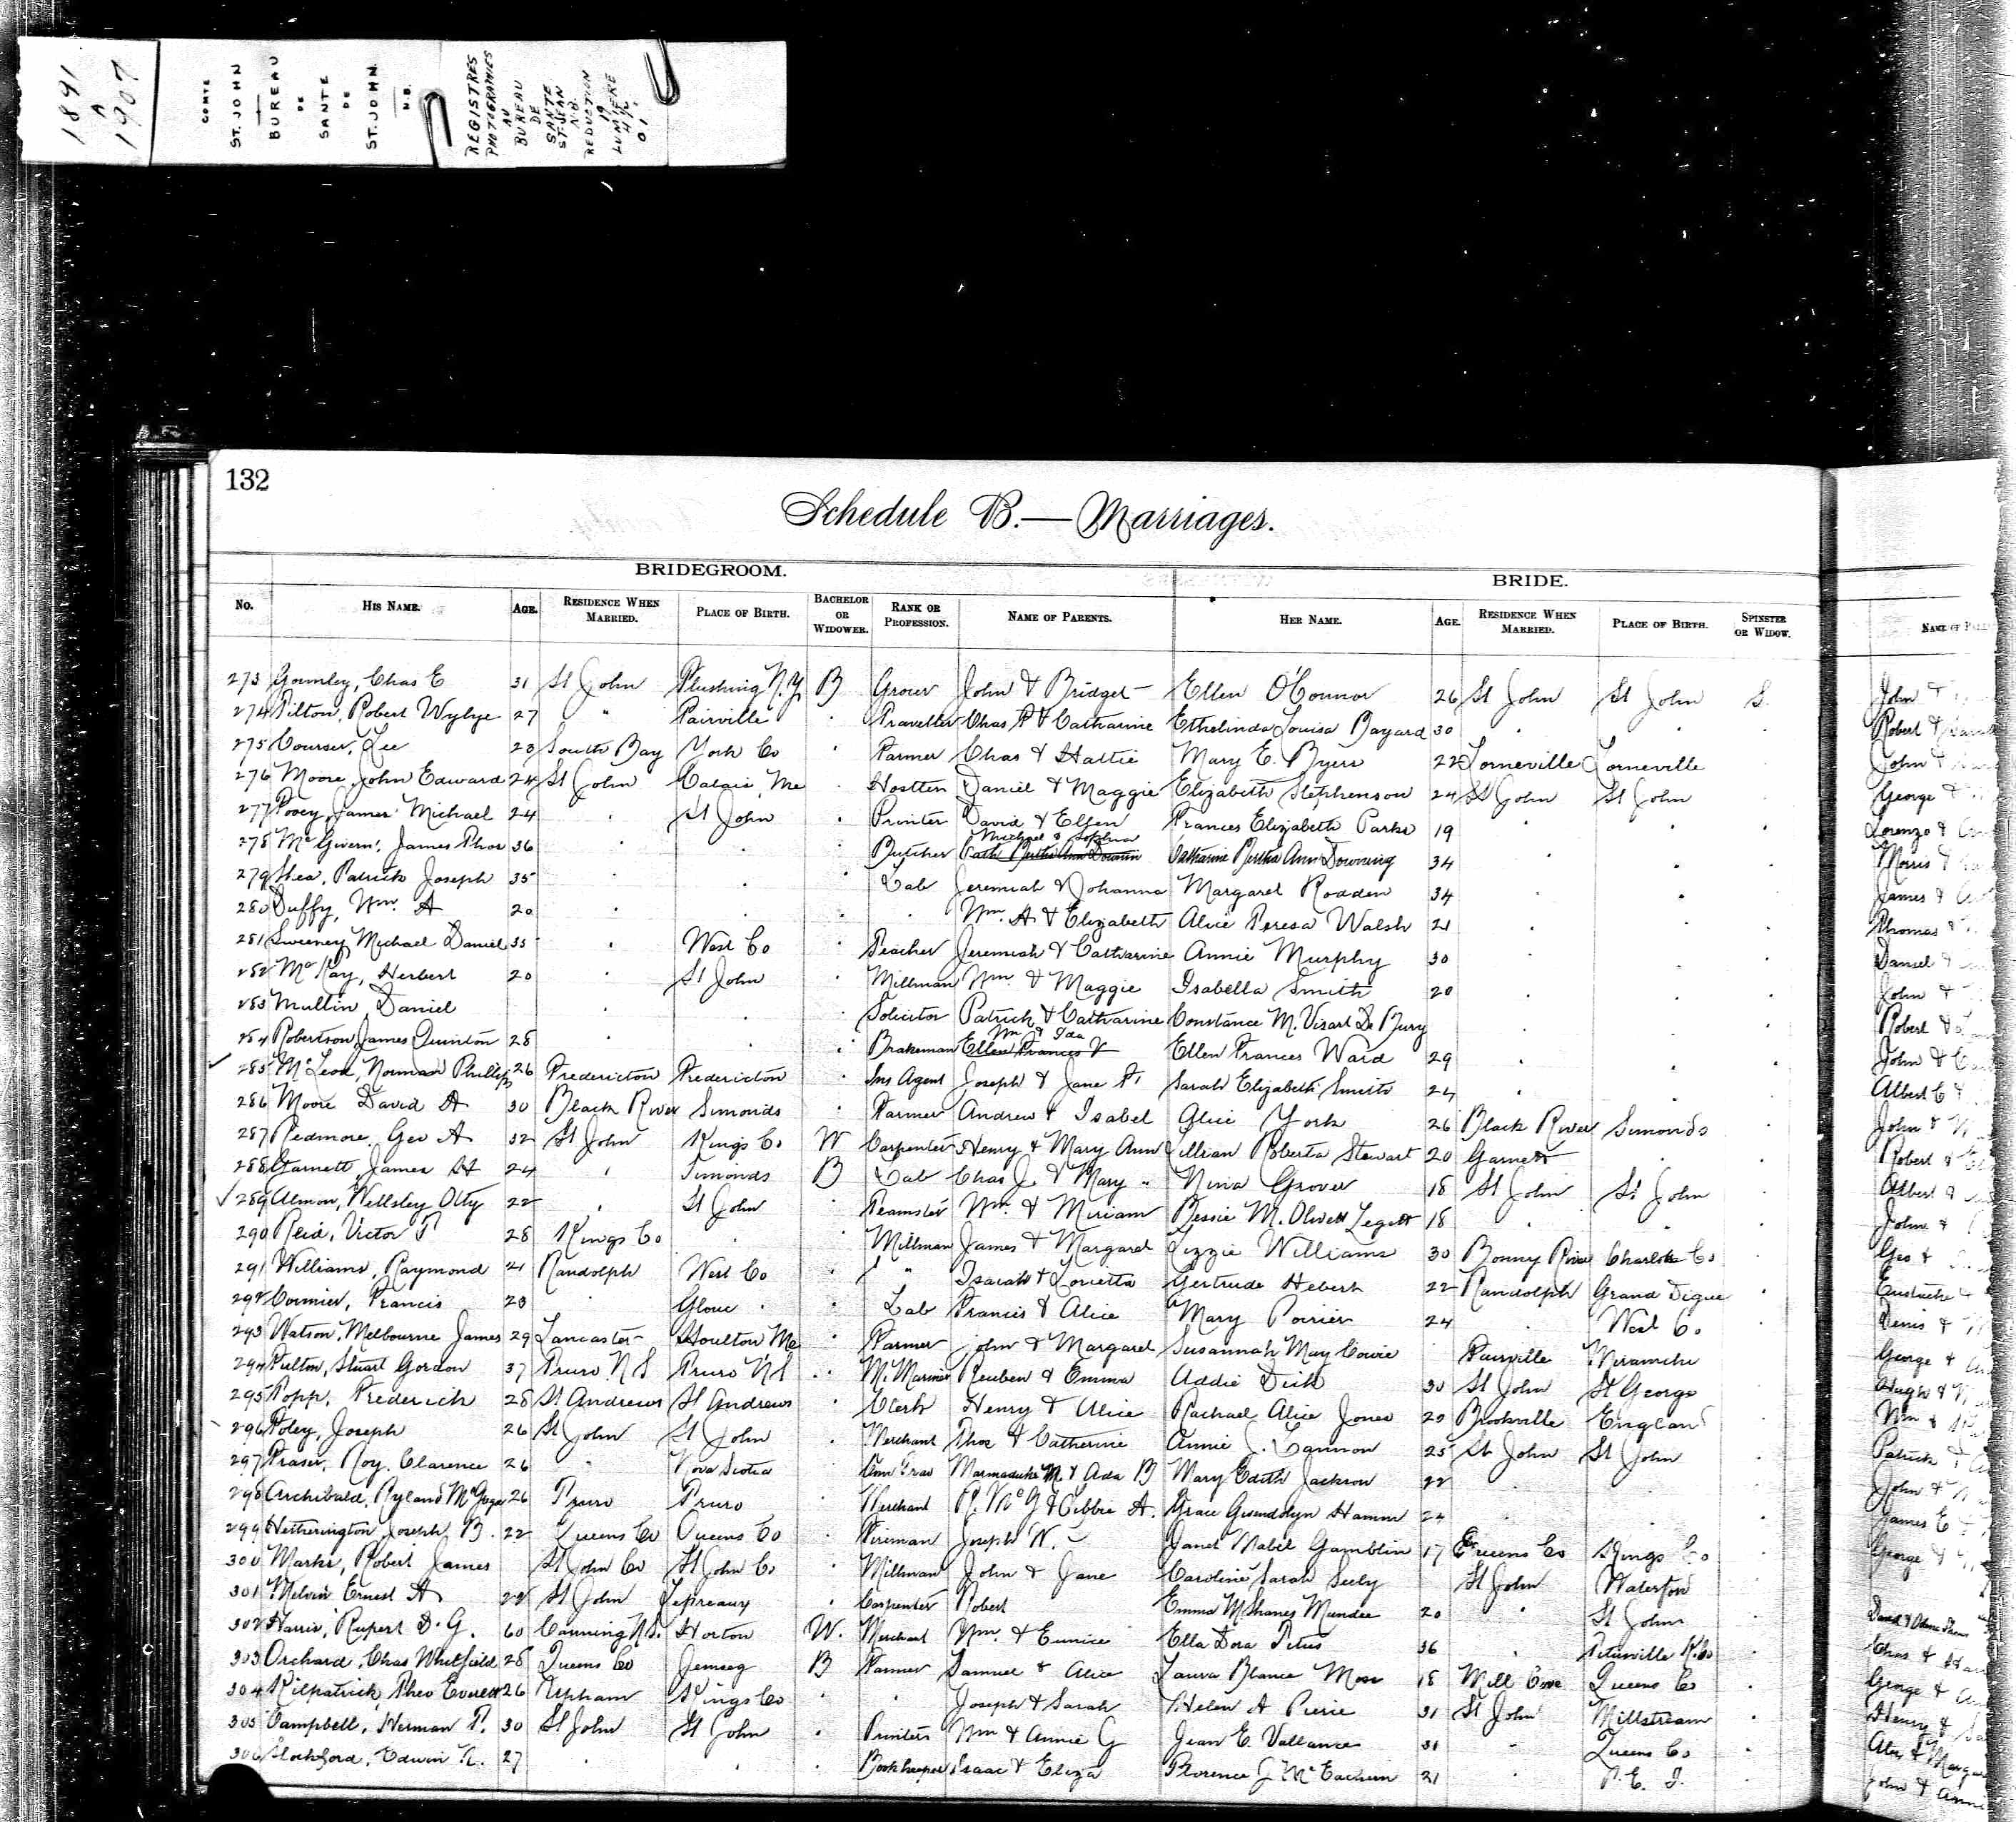 1891
A
1907
COMTE
ST. JOHN
BUREAU
DE
SANTE
DE
ST. JOHN.
N.B.
REGISTRES
PHOTOGRAPHIES
AU
BUREAU
DE
SANTE
ST-JEAN
N.B.
REDUCTION
19
LUMIERE
132
Schedule B.—Marriages.
BRIDEGROOM. BRIDE.
No. HIS NAME. AGE. RESIDENCE WHEN MARRIED. PLACE OF BIRTH. BACHELOR OR WIDOWER. RANK OR PROFESSION. NAME OF PARENTS. HER NAME. AGE. RESIDENCE WHEN MARRIED. PLACE OF BIRTH. SPINSTER OR WIDOW. NAME OF
273 Gormley, Chas E 31 St John Flushing N.Y. B Grocer John & Bridget Ellen O'Connor 26 St John St John S. John &
274 Tilton, Robert Wylye 27 " Fairville Traveller Chas & Catharine Ethelinda Louisa Bayard 30 Robert &
275 Courser, Lee 23 South Bay York Co Farmer Chas & Hattie Mary E. Byers 22 Lorneville Lorneville John &
276 Moore, John Edward 24 St John Calais, Me Daniel & Maggie Elizabeth Stephenson 24 St John St John George &
277 James Michael 24 St John Printer David & Ellen Frances Elizabeth Parks 19 Lorenzo &
278 McGivern, James Thos 36 Butcher Michael & Sophia Catharine Bertha Ann Downing 34 Morris &
279 Shea, Patrick Joseph 35 Lab Jeremiah & Johanna Margaret Rodden 34 James &
280 Duffy, Wm. A 20 Wm. A & Elizabeth Alice Teresa Walsh 21 Thomas &
281 Sweeney Michael Daniel 35 West Co Teacher Jeremiah & Catharine Annie Murphy 30 Daniel &
282 McKay, Herbert 20 St John Millman Wm. & Maggie Isabella Smith 20 John &
283 Mullin, Daniel Solicitor Patrick & Catharine Constance M. Visart De Bury Robert &
284 Robertson, James Quinton 28 Brakeman Wm & Ida Ellen Frances Ward 29 John &
285 McLeod, Norman Phillip 26 Fredericton Fredericton Ins Agent Joseph & Jane Sarah Elizabeth Smith 24 Albert C &
286 Moore David A 30 Black River Simonds Farmer Andrew & Isabel Alice York 26 Black River Simonds John &
287 Redmore, Geo A 32 St John Kings Co W Carpenter Henry & Mary Ann Lillian Roberta Stewart 20 Garnett Robert &
288 Garnett, James H 24 Simonds B Lab Chas J. & Mary Nina Grover 18 St John St John Albert &
289 Almon, Wellsley Otty 22 St John Teamster Wm. & Miriam Bessie M. Olivett Legett 18 John &
290 Reid, Victor T 28 Kings Co Millman James & Margaret Lizzie Williams 30 Bonny River Charlotte Co Geo &
291 Williams, Raymond 21 Randolph West Co " Isaiah & Loretta Gertrude Hebert 22 Randolph Grand Digue
292 Cormier, Francis 23 Glouc Lab Francis & Alice Mary Poirier 24 West Co. Denis &
293 Watson, Melbourne James 29 Lancaster Houlton Me Farmer John & Margaret Susannah May Cowie Fairville Miramichi George &
294 Fulton, Stuart Gordon 37 Truro N S Truro N S M. Mariner Reuben & Emma Addie Dick 30 St John St George Hugh &
295 Popp, Frederick 28 St Andrews St Andrews Clerk Henry & Alice Rachael Alice Jones 20 Brookville England Wm &
296 Foley, Joseph 26 St John St John Merchant Thos & Catherine Annie J. Cannon 25 St John St John Patrick &
297 Fraser, Roy Clarence 26 Nova Scotia Com Trav Marmaduke M. & Ada B Mary Edith Jackson 22 John &
298 Archibald, Ryland 26 Truro Truro Merchant & Libbie A. Grace Gwendolyn Hamm 24 James E
299 Hetherington Joseph B. 22 Queens Co Queens Co Fireman Joseph W. Janet Mabel Gamblin 17 Queens Co Kings Co George &
300 Marks, Robert James St John Co St John Co Millman John & Jane Caroline Sarah Seely St John Waterford
301 Melvin Ernest A 22 St John Lepreaux Carpenter Robert Emma 20 St John
302 Harris, Rupert D. G. 60 Canning N.S. Horton W. Merchant Wm. & Eunice Ella Dora Titus 36 Titusville K. Co Chas &
303 Orchard, Chas Whitfield 28 Queens Co Jemseg B Farmer Samuel & Alice Laura Blance 18 Mill Cove Queens Co George &
304 Kilpatrick Theo Everett 26 Upham Kings Co Joseph & Sarah Helen A Pierie 31 St John Millstream Henry &
305 Campbell, Herman T. 30 St John St John Printer Wm & Annie G Jean E. Vallance 31 Queens Co Alex & Margar
306 Edwin R. 27 Bookkeeper Isaac & Eliza Florence J McEachern 21 P. E. I. John & Anni